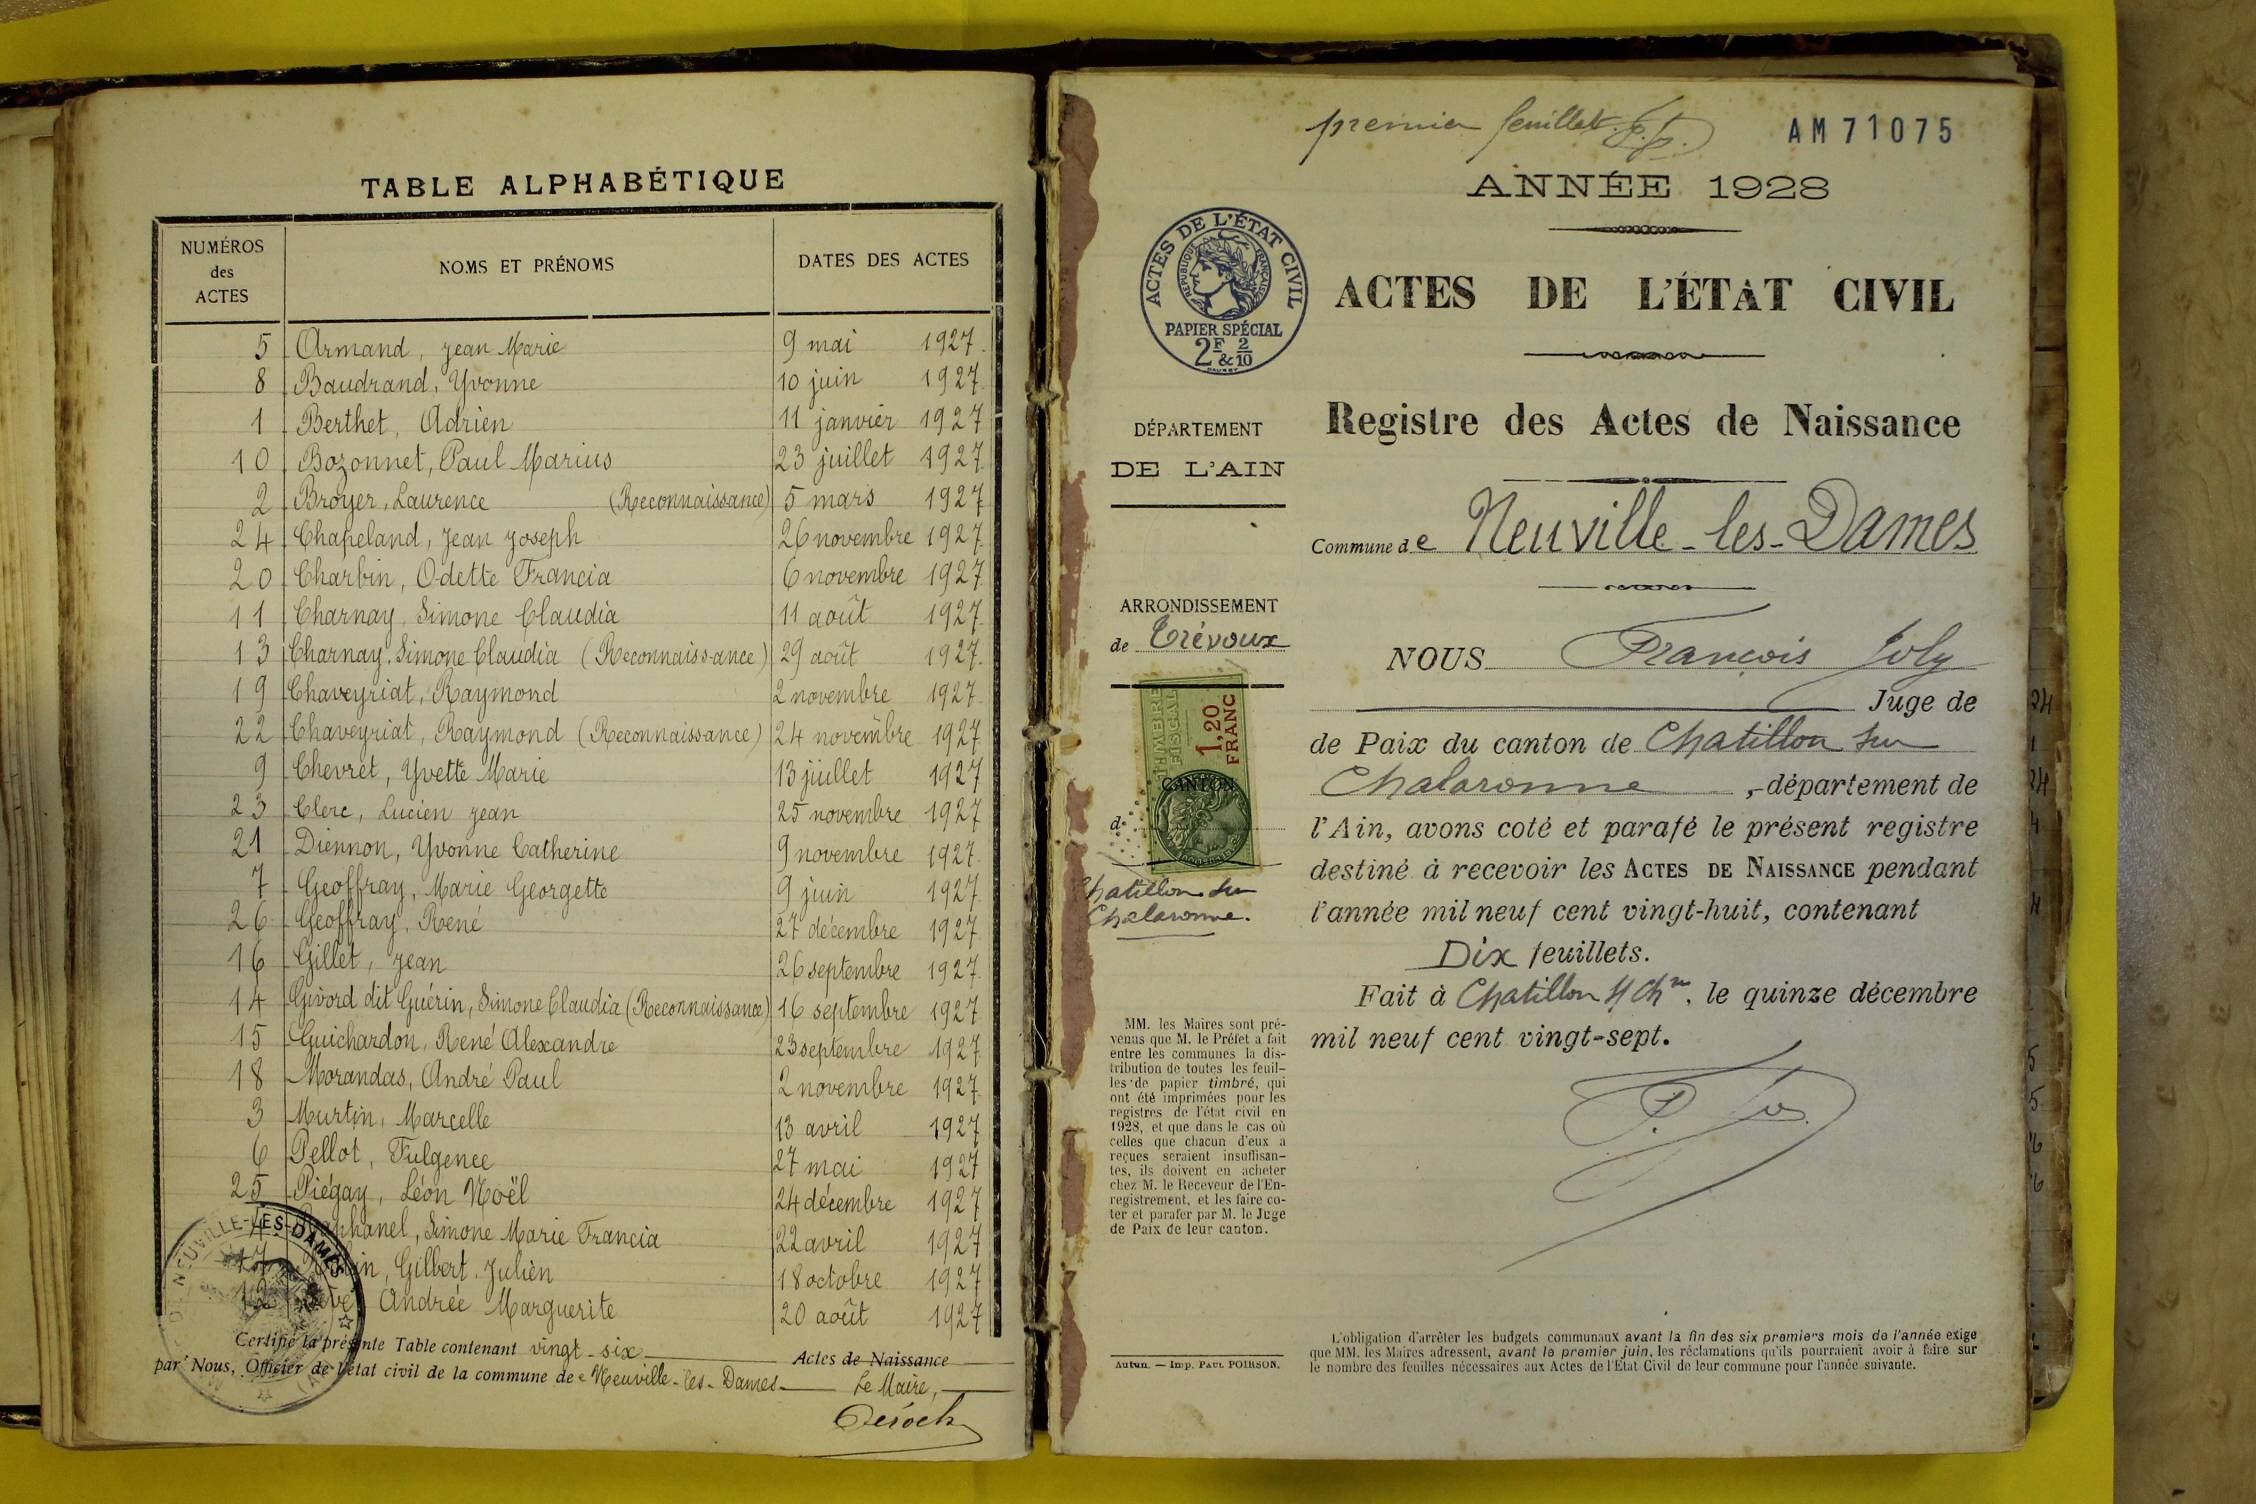 TABLE ALPHABÉTIQUE
NUMÉROS des ACTES NOMS ET PRÉNOMS DATES DES ACTES
5 Armand, Jean Marie 9 mai 1927
8 Baudrand, Yvonne 10 juin 1927
1 Berthet, Adrien 11 janvier 1927
10 Bozonnet, Paul Marius 23 juillet 1927
2 Broyer, Laurence (Reconnaissance) 5 mars 1927
24 Chapeland, Jean Joseph 26 novembre 1927
20 Charbin, Odette Francia 6 novembre 1927
11 Charnay, Simone Claudia 11 août 1927
13 Charnay, Simone Claudia (Reconnaissance) 29 août 1927
19 Chaveyriat, Raymond 2 novembre 1927
22 Chaveyriat, Raymond (Reconnaissance) 24 novembre 1927
9 Chevret, Yvette Marie 13 juillet 1927
23 Clerc, Lucien Jean 25 novembre 1927
21 Diennon, Yvonne Catherine 9 novembre 1927
7 Geoffray, Marie Georgette 9 juin 1927
26 Geoffray, René 27 décembre 1927
16 Gillet, Jean 26 septembre 1927
14 Givord dit Guérin, Simone Claudia (Reconnaissance) 16 septembre 1927
15 Guichardon, René Alexandre 23 septembre 1927
18 Morandas, André Paul 2 novembre 1927
3 Murtin, Marcelle 13 avril 1927
6 Pellot, Fulgence 27 mai 1927
25 Piégay, Léon Noël 24 décembre 1927
4 Raphanel, Simone Marie Francia 22 avril 1927
17 Gilbert, Julien 18 octobre 1927
12 Andrée Marguerite 20 août 1927
Certifié la présente Table contenant vingt-six Actes de Naissance
par Nous, Officier de l'état civil de la commune de Neuville-les-Dames Le Maire,
premier feuillet
AM 71075
ANNÉE 1928
ACTES DE L'ÉTAT CIVIL
RÉPUBLIQUE FRANÇAISE
PAPIER SPÉCIAL
2F & 2/10
ACTES DE L'ÉTAT CIVIL
Registre des Actes de Naissance
DÉPARTEMENT
DE L'AIN
Commune de Neuville-les-Dames
ARRONDISSEMENT
de Trévoux
TIMBRE FISCAL
1,20 FRANC
CANTON
d
Chatillon sur
Chalaronne.
NOUS François Joly
Juge de
de Paix du canton de Chatillon sur
Chalaronne, département de
l'Ain, avons coté et parafé le présent registre
destiné à recevoir les ACTES DE NAISSANCE pendant
l'année mil neuf cent vingt-huit, contenant
Dix feuillets.
Fait à Chatillon s/ Chne, le quinze décembre
mil neuf cent vingt-sept.
MM. les Maires sont pré-
venus que M. le Préfet a fait
entre les communes la dis-
tribution de toutes les feuil-
les de papier timbré, qui
ont été imprimées pour les
registres de l'état civil en
1928, et que dans le cas où
celles que chacun d'eux a
reçues seraient insuffisan-
tes, ils doivent en acheter
chez M. le Receveur de l'En-
registrement, et les faire co-
ter et parafer par M. le Juge
de Paix de leur canton.
Autun. — Imp. PAUL POIRSON.
L'obligation d'arrêter les budgets communaux avant la fin des six premiers mois de l'année exige
que MM. les Maires adressent, avant le premier juin, les réclamations qu'ils pourraient avoir à faire sur
le nombre des feuilles nécessaires aux Actes de l'Etat Civil de leur commune pour l'année suivante.